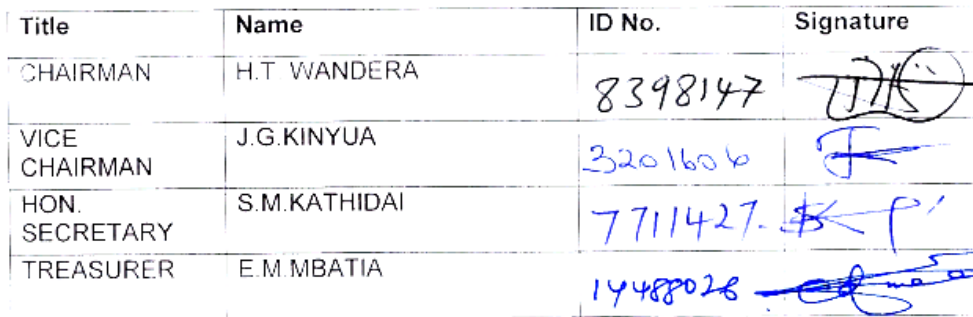 Title Name ID No. Signature
CHAIRMAN H.T WANDERA 8398147
VICE CHAIRMAN J.G.KINYUA 3201606
HON. SECRETARY S.M.KATHIDAI 7711427.
TREASURER E.M.MBATIA 14488026